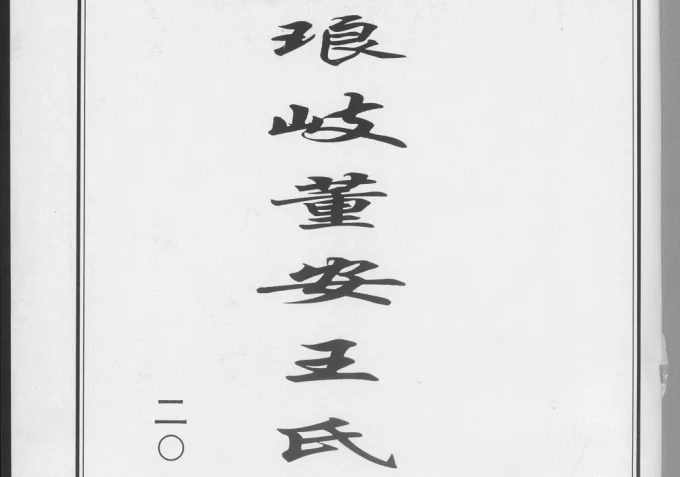 琅岐董安王氏
二〇